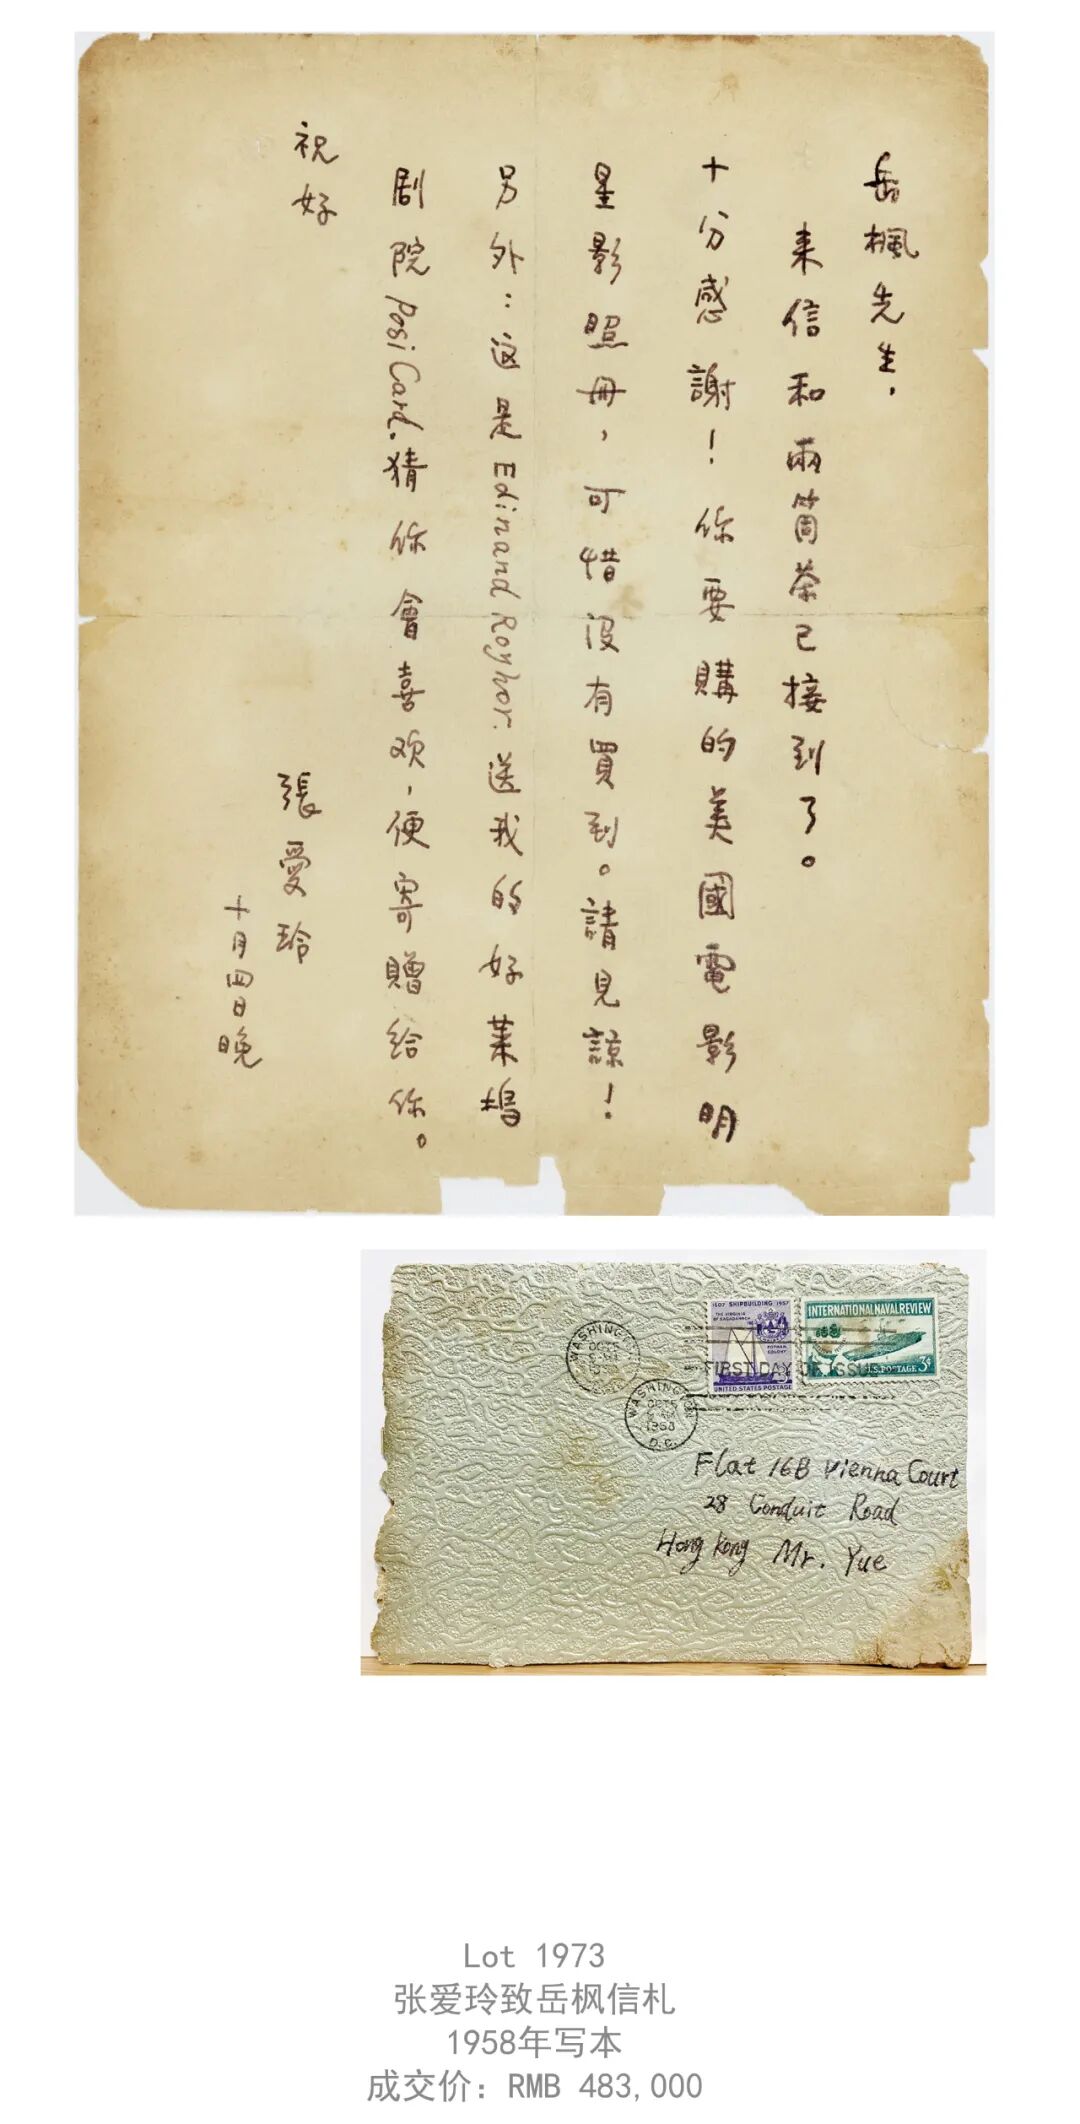 岳楓先生，
来信和兩筒茶已接到了。
十分感謝！你要購的美國電影明
星影照冊，可惜没有買到。請見諒！
另外：这是 Edinand Royhor. 送我的好莱塢
剧院 Posi Card. 猜你會喜欢，便寄贈给你。
祝好
張愛玲
十月四日晚
1607 SHIPBUILDING 1957
THE VIRGINIA OF SAGADAHOCK
POPHAM COLONY
3¢
UNITED STATES POSTAGE
INTERNATIONAL NAVAL REVIEW
U.S. POSTAGE 3¢
FIRST DAY OF ISSUE
WASHINGTON
WASHINGTON
1958
D.C.
Flat 16B Vienna Court
28 Conduit Road
Hong Kong Mr. Yue
Lot 1973
张爱玲致岳枫信札
1958年写本
成交价：RMB 483,000